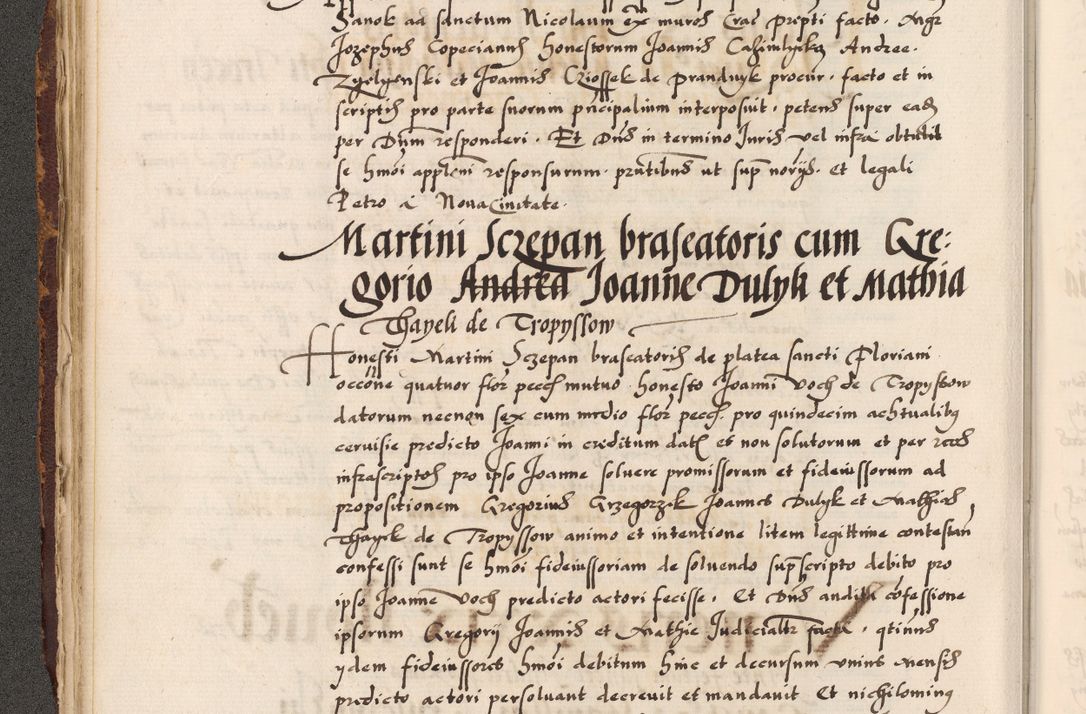 Sanok ad sanctum Nicolaum ex muros Crac prepti facto. Mgr
Jozephus Copecianus honestorum Joannis Cazimlycka Andree
Zyelyenski et Joannis Cziossek de prandnyk procur. facto et in
scriptis pro parte suorum principalium interposuit. petens super ead
per Dnm responderi. Et Dns in termino Juris vel infra obtulit
se hmoi applcni responsurum. prntibus ut sup norys. et legali
Petro a Nova Civitate.
Martini Sczepan braseatoris cum Gre:
gorio Andrea Joanne Dulyk et Mathia
Thayeli de Tropyssow
Honesti Martini Sczepan braseatoris de platea sancti Floriani
occone quatuor flor pecch mutuo honesto Joanni Voch de Tropyssow
datorum necnon sex cum medio flor pecch. pro quindecim achtualibus
cervisie predicto Joanni in creditum dat et non solutorum et per reos
infrascriptos pro ipso Joanne solvere promissorum et fideiussorum ad
propositionem Gregorius Grzegorzek Joannes Dulyk et Mathias
Thayek de Tropyssow animo et intentione litem legittime contestan
confessi sunt se hmoi fideiussoriam de solvendo supscripto debito pro
ipso Joanne Voch predicto actori fecisse. Et Dns audita cofessione
ipsorum Gregory Joannis et Mathie Judicialtr facta, qtinus
ydem fideiussores hmoi debitum hinc et decursum unius mensis
predicto actori persolvant decrevit et mandavit Et nichilominus